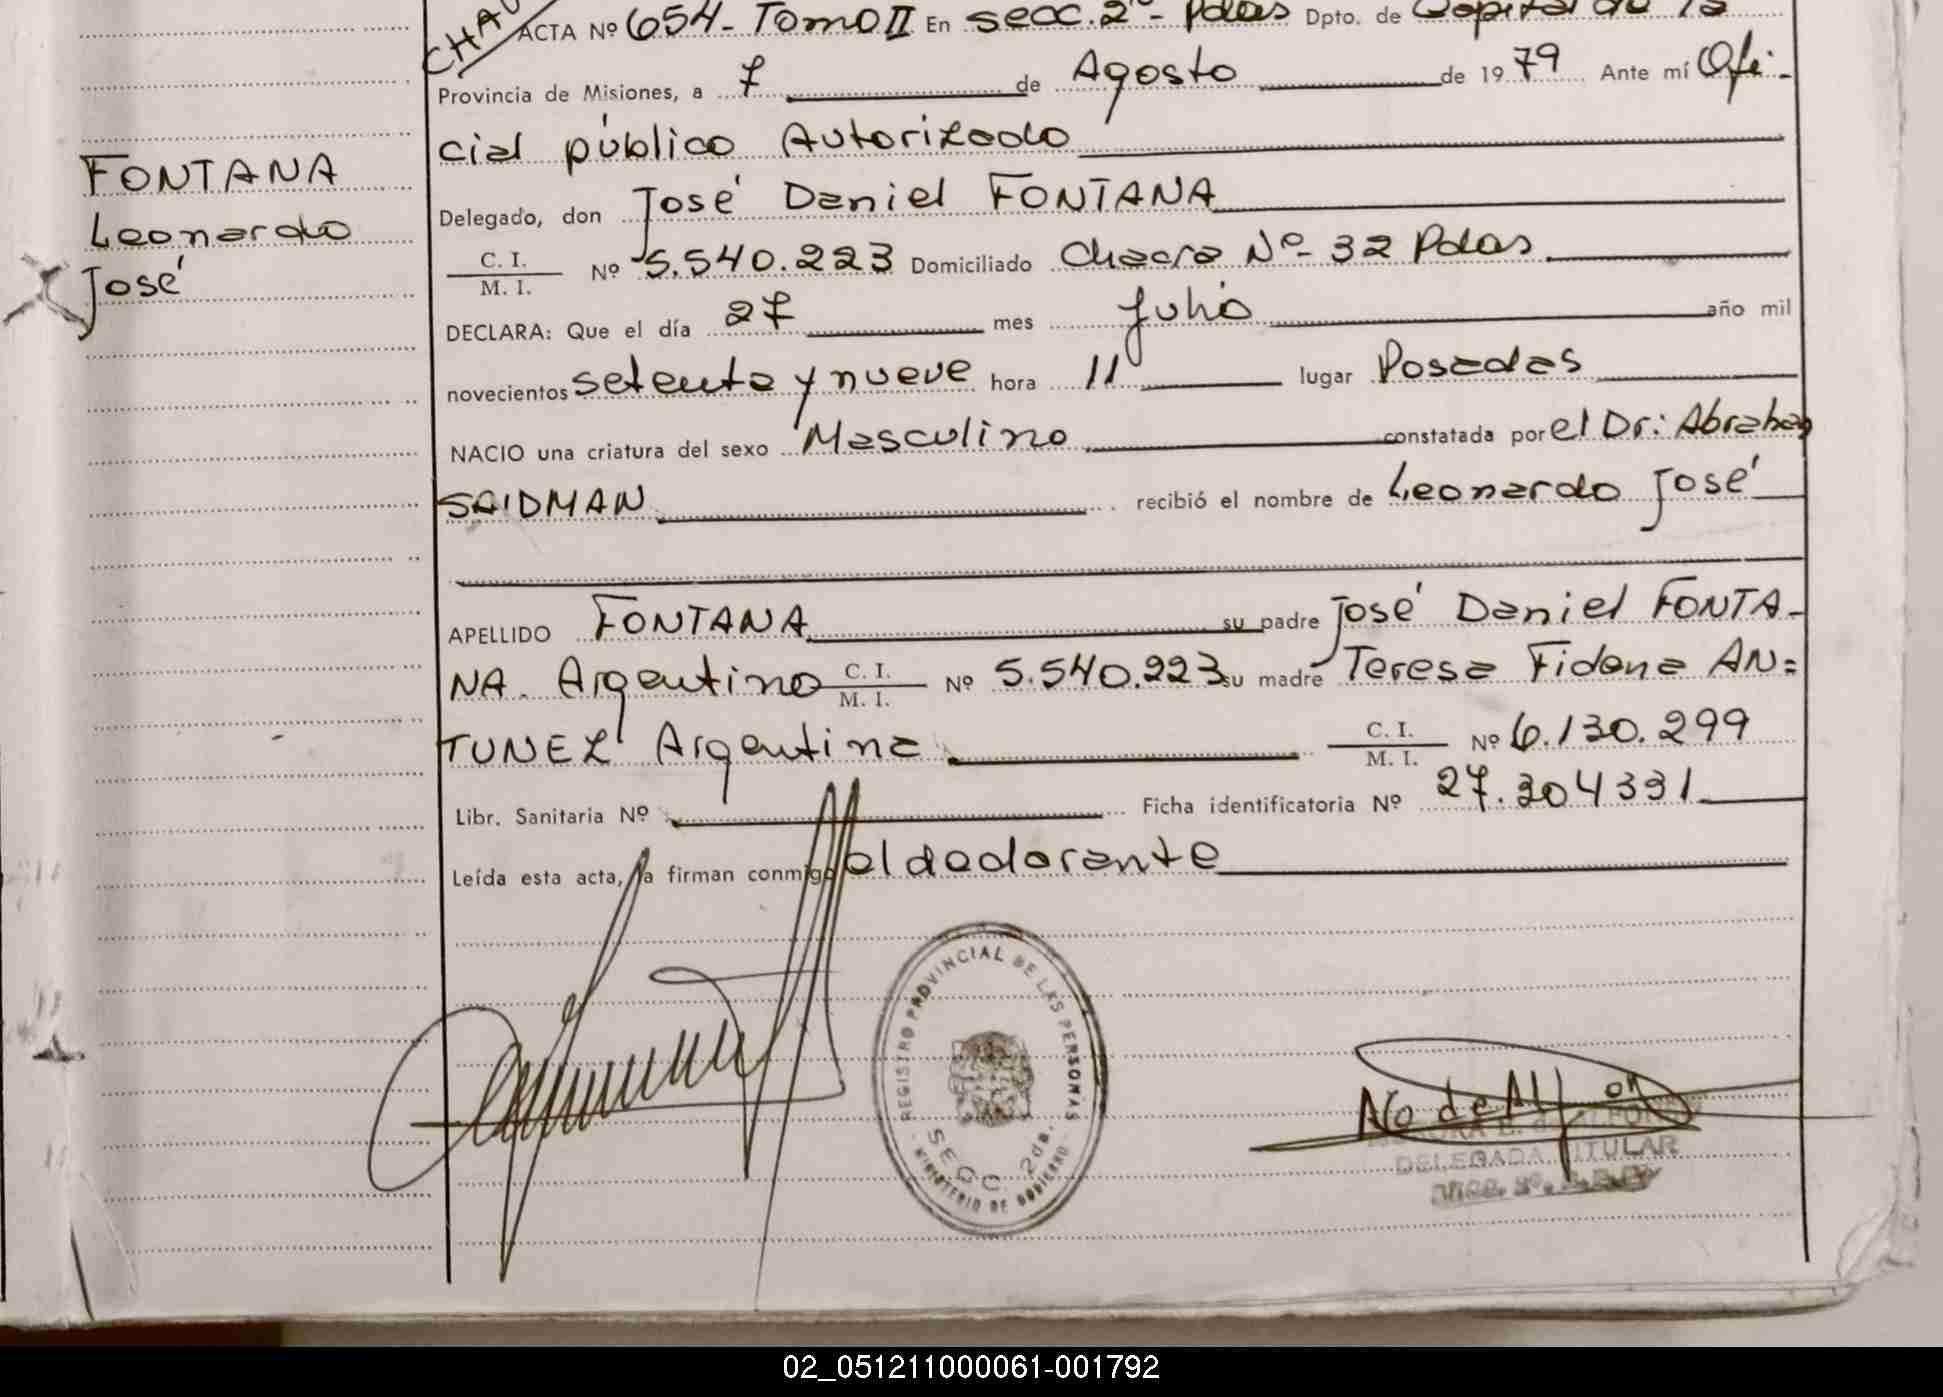 ACTA Nº 654- Tomo II En secc. 2º- Pdas Dpto. de Capital de la
Provincia de Misiones, a 7 de Agosto de 1979 Ante mí Ofi-
cial público Autorizado
FONTANA
Leonardo
José
Delegado, don José Daniel FONTANA
C. I.
M. I. Nº 5.540.223 Domiciliado Chacra Nº- 32 Pdas
DECLARA: Que el día 27 mes Julio año mil
novecientos setenta y nueve hora 11 lugar Posadas
NACIO una criatura del sexo Masculino constatada por el Dr: Abraham
SAIDMAN recibió el nombre de Leonardo José
APELLIDO FONTANA su padre José Daniel FONTA-
NA. Argentino C. I. M. I. Nº 5.540.223 su madre Teresa Fidena AN=
TUNEZ Argentina C. I. M. I. Nº 6.130.299
Libr. Sanitaria Nº Ficha identificatoria Nº 27.304331
Leída esta acta, la firman conmigo el declarante
REGISTRO PROVINCIAL DE LAS PERSONAS
SECC. 2da.
MINISTERIO DE GOBIERNO
DELEGADA TITULAR
02_051211000061-001792